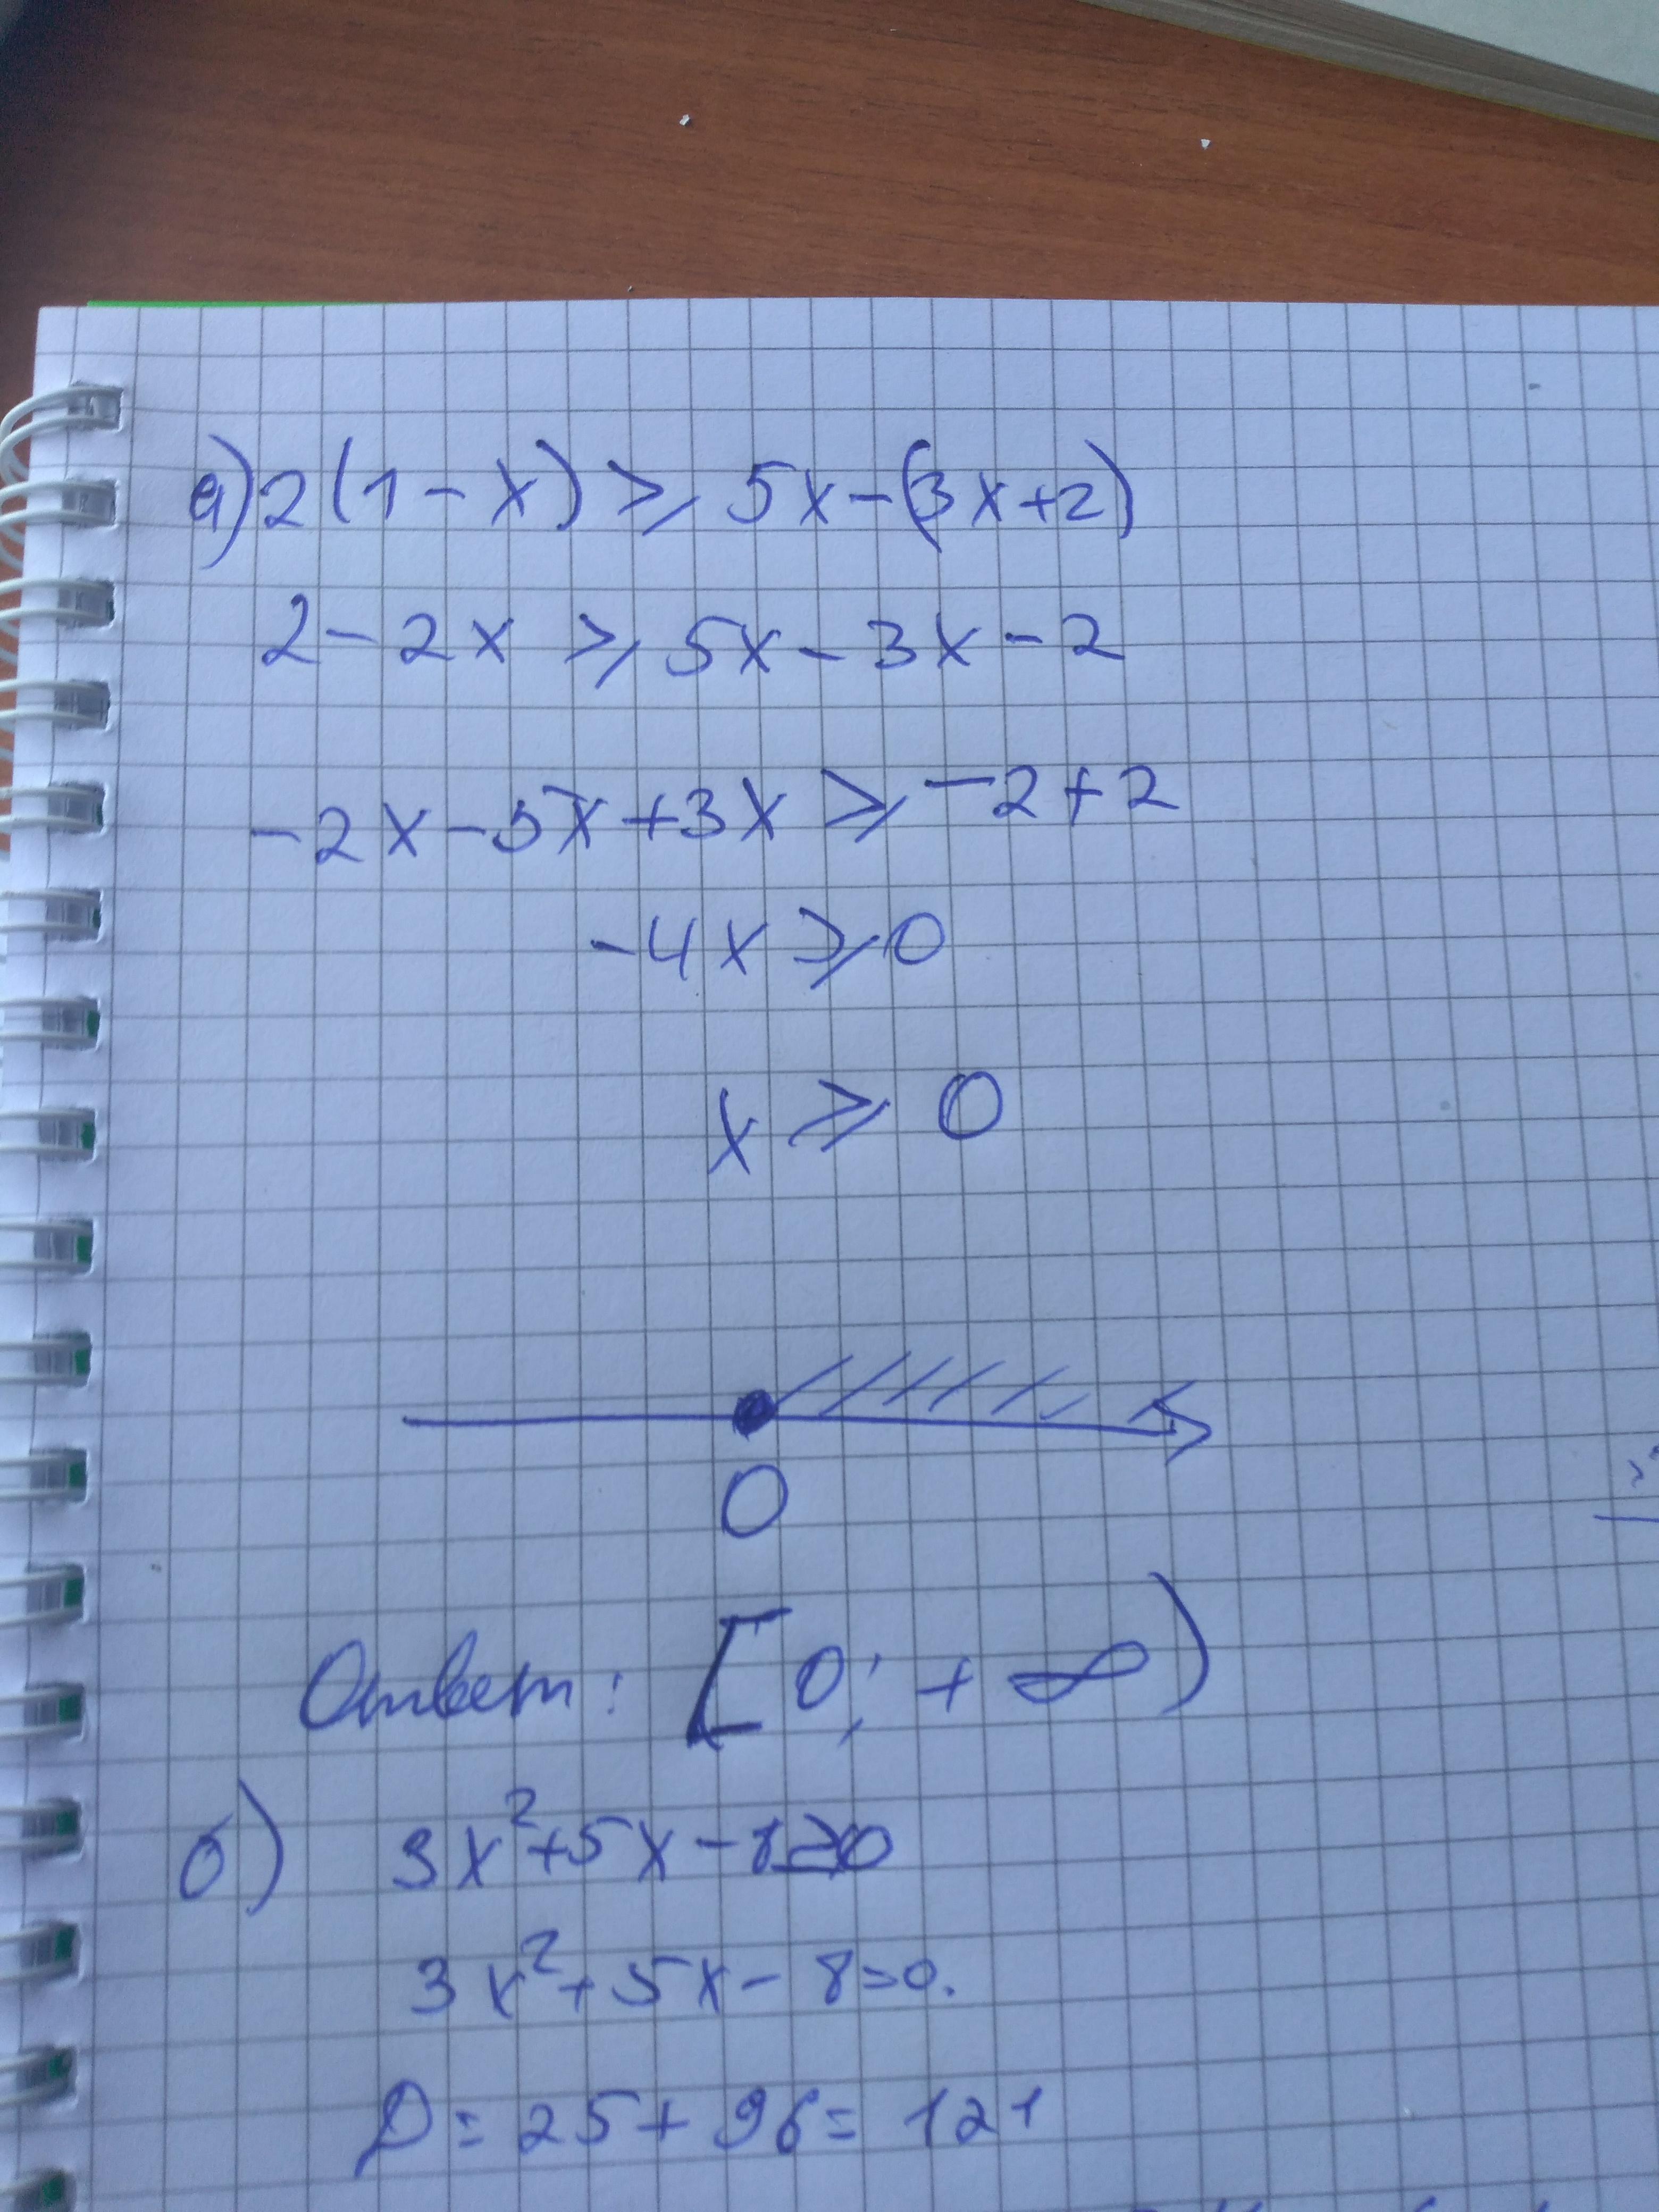 а) 2(1-x) ⩾ 5x-(3x+2)
2-2x ⩾ 5x-3x-2
-2x-5x+3x ⩾ -2+2
-4x ⩾ 0
x ⩾ 0
0
Ответ: [0; +∞)
б) 3x²+5x-8⩾0
3x²+5x-8=0.
D=25+96=121